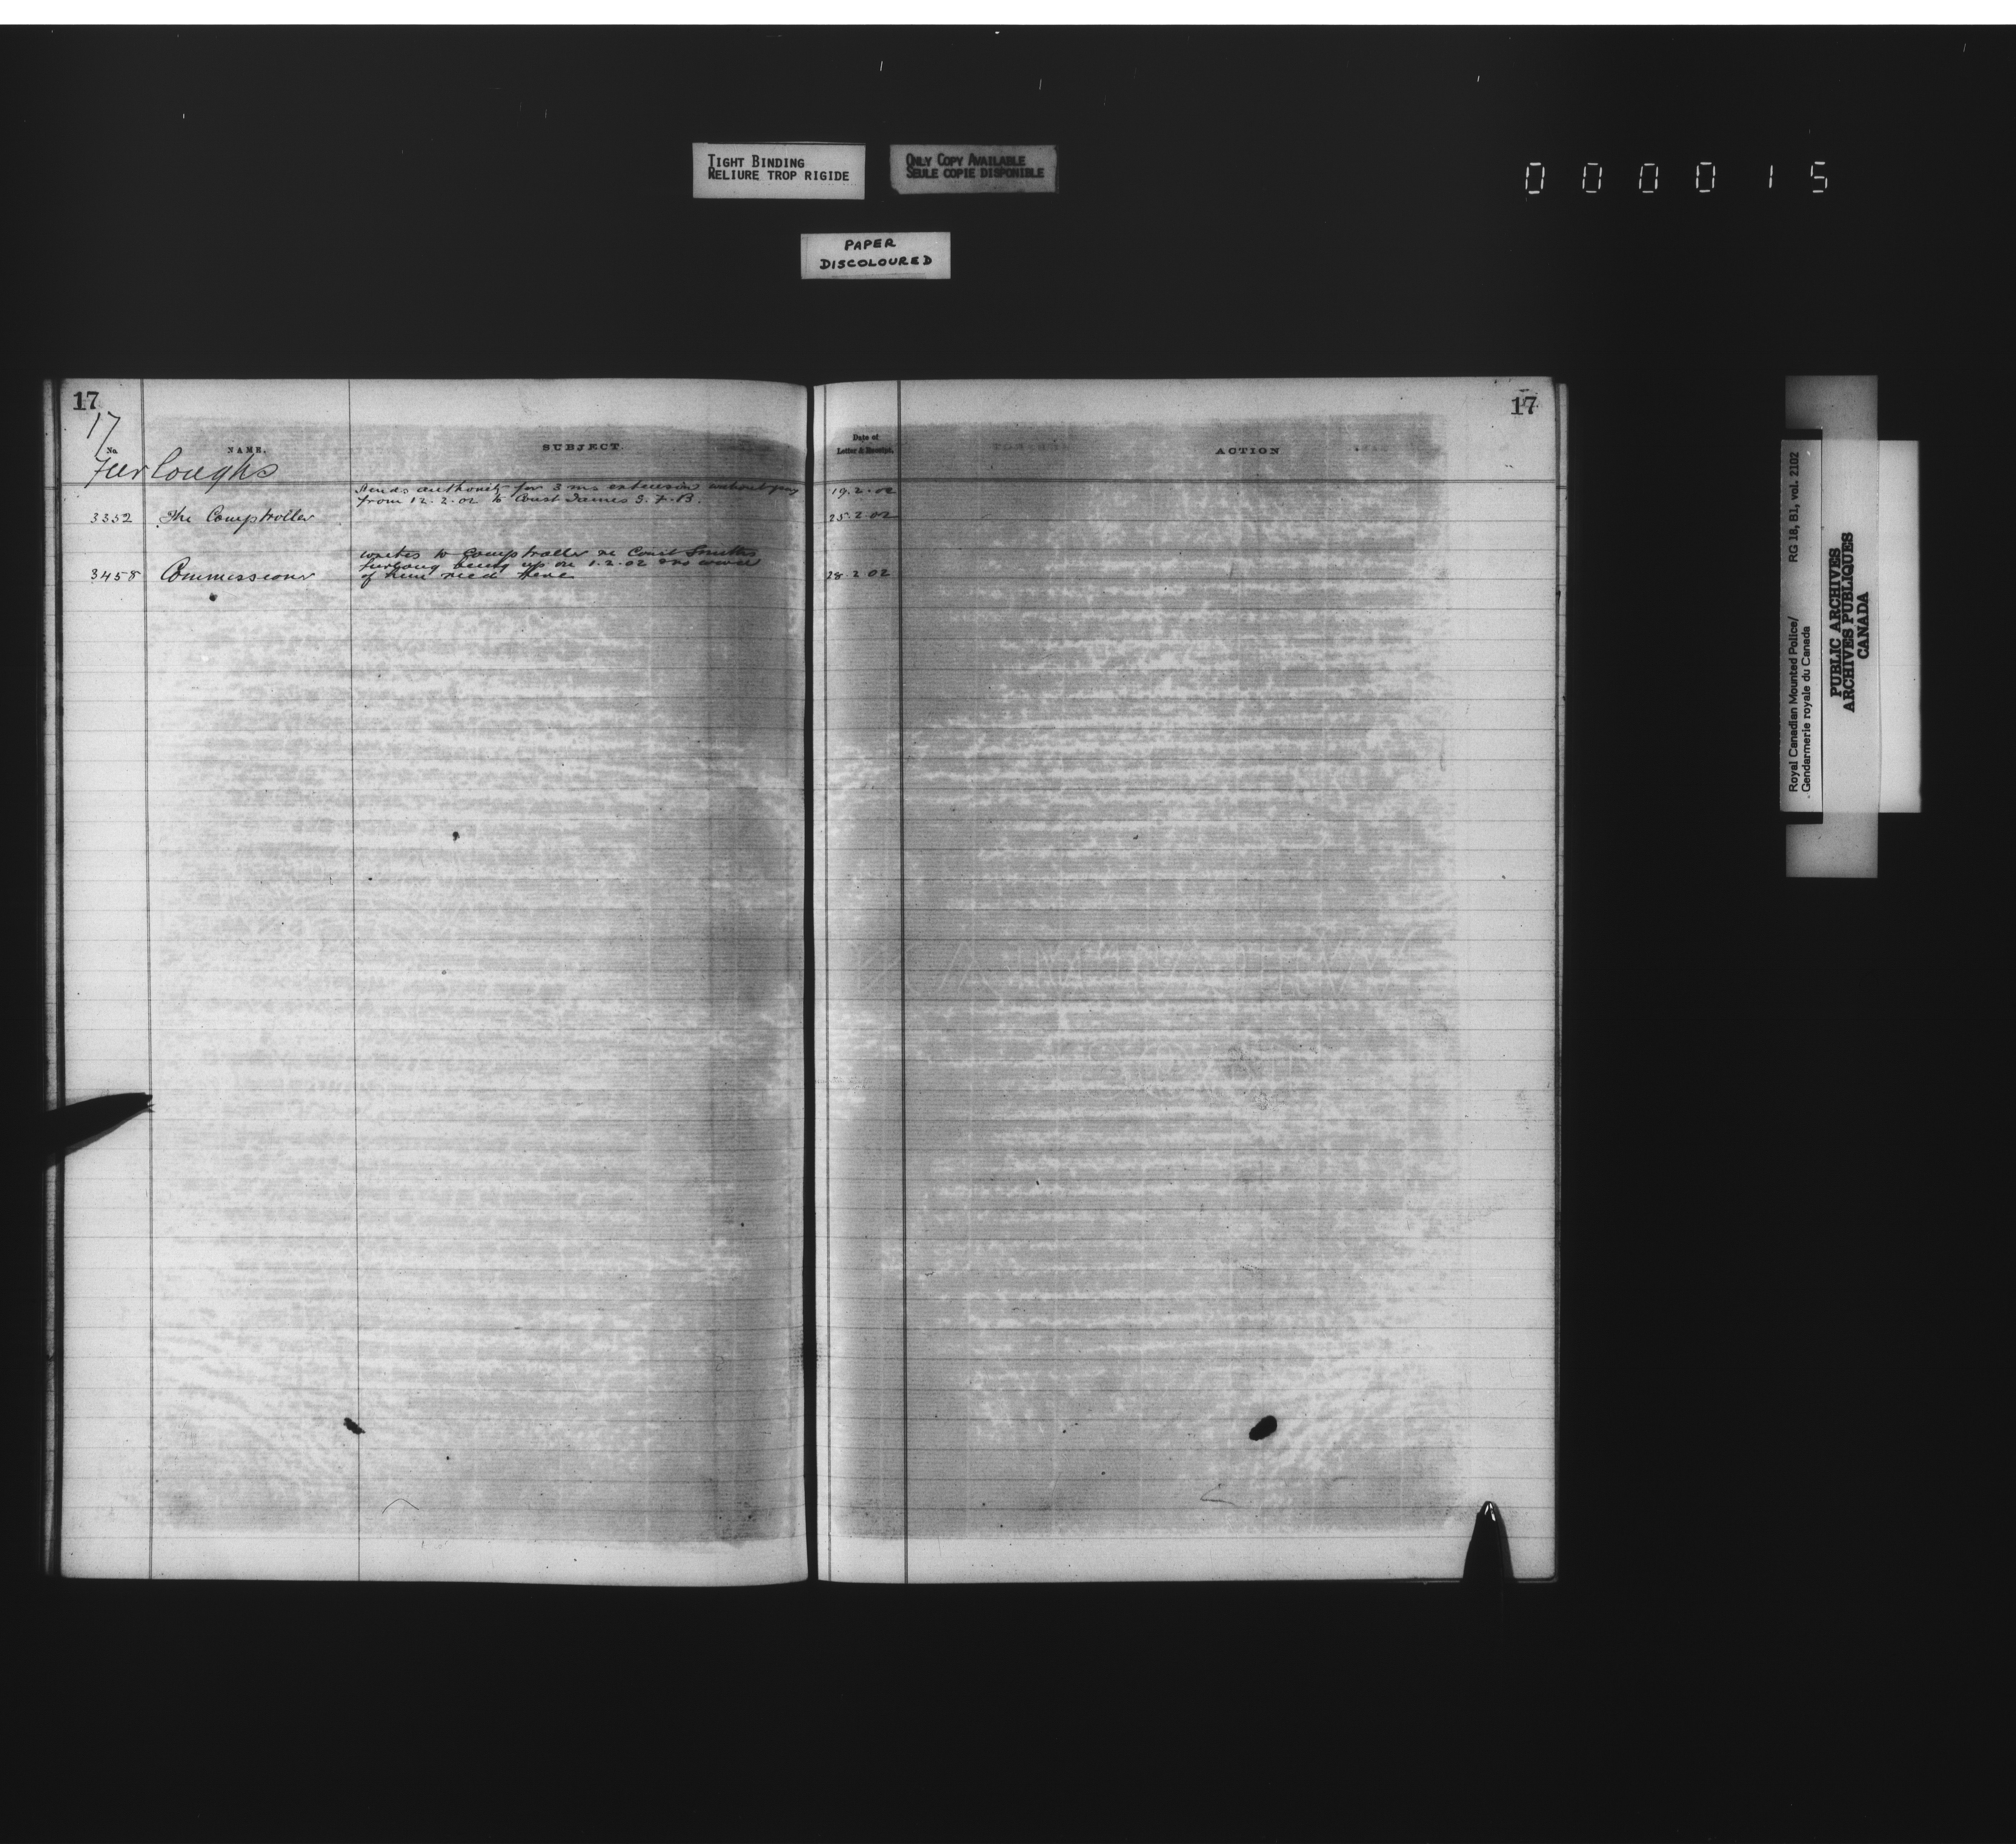 TIGHT BINDING
RELIURE TROP RIGIDE
ONLY COPY AVAILABLE
SEULE COPIE DISPONIBLE
0 0 0 0 1 5
PAPER
DISCOLOURED
17
17
17
No. NAME. SUBJECT. Date of Letter & Receipt. ACTION
Furloughs
Sends authority for 3 ms extension without pay 19.2.02
from 12.2.02 to Const James S. F. B.
3352 The Comptroller 25.2.02
writes to Comptroller re Const Smiths
furlong being up on 1.2.02 & no word
3458 Commissioner of him recd here 28.2.02
Royal Canadian Mounted Police/ RG 18, B1, vol. 2102
Gendarmerie royale du Canada
PUBLIC ARCHIVES
ARCHIVES PUBLIQUES
CANADA